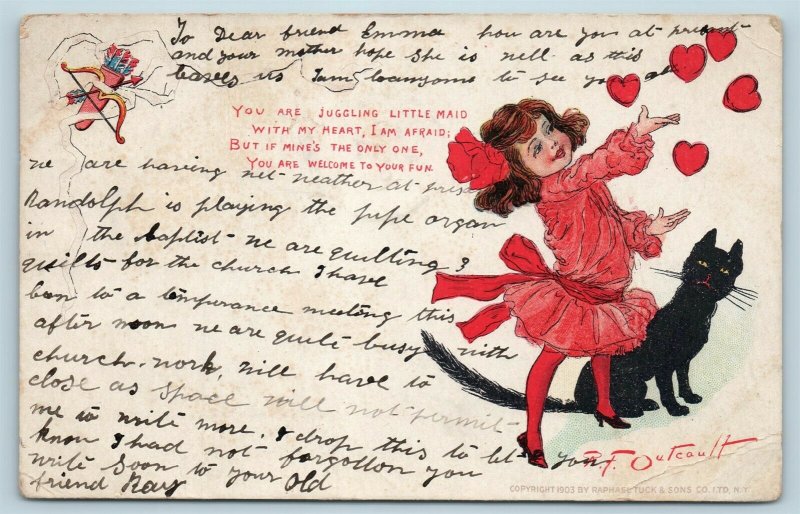 To Dear friend Emma how are you at present
and your mother hope she is well as this
leaves us I am lonesome to see you all
YOU ARE JUGGLING LITTLE MAID
WITH MY HEART, I AM AFRAID;
BUT IF MINE'S THE ONLY ONE,
YOU ARE WELCOME TO YOUR FUN.
we are having wet weather at prese
Randolph is playing the pipe organ
in the baptist we are quilting
quilts for the church I have
ben to a temperance meeting this
after noon we are quite busy with
church work, will have to
close as space will not permit
me to write more. I drop this to let you
know I had not forgotton you
write soon to your Old
friend
R.F. Outcault
COPYRIGHT 1903 BY RAPHAEL TUCK & SONS CO. LTD., N.Y.